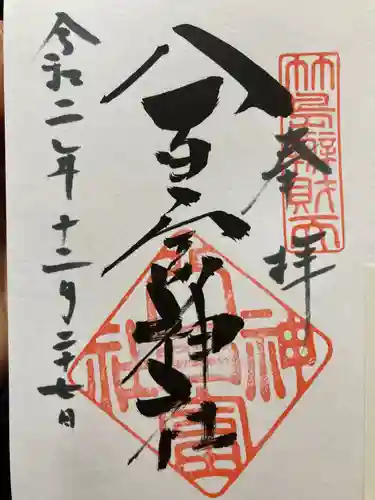 竹島辨財天
奉拝
八百富神社
八百富神社
令和二年十二月二十七日